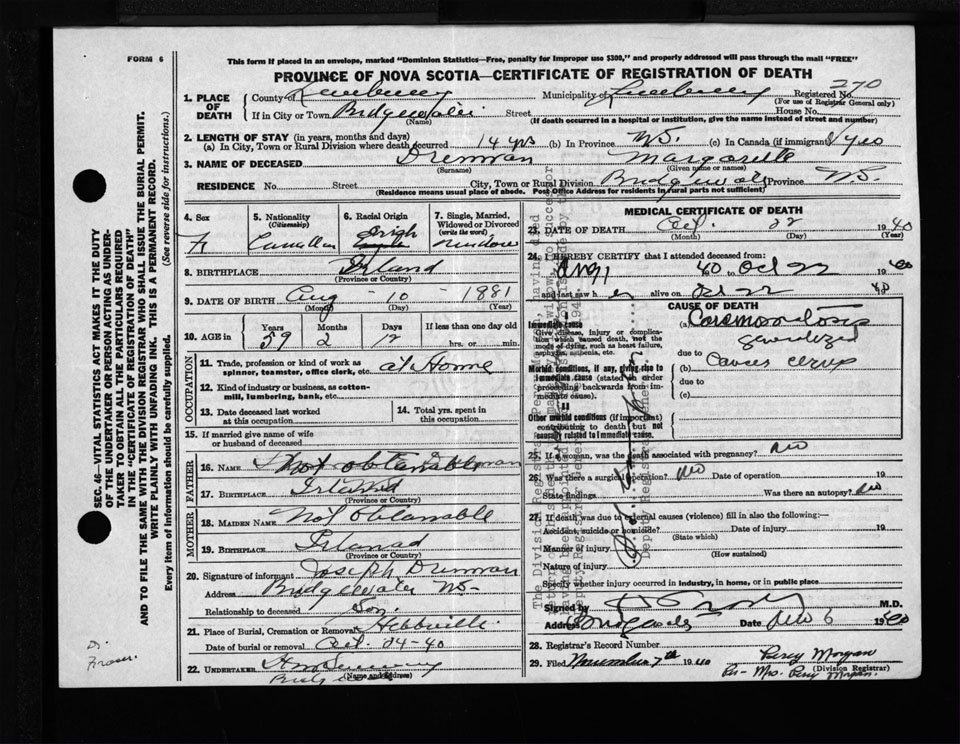 FORM 6
This form if placed in an envelope, marked "Dominion Statistics—Free, penalty for Improper use $300," and properly addressed will pass through the mail "FREE"
PROVINCE OF NOVA SCOTIA—CERTIFICATE OF REGISTRATION OF DEATH
270
1. PLACE OF DEATH
County of Lunenburg Municipality of Lunenburg Registered No.
(For use of Registrar General only)
If in City or Town Bridgewater Street House No.
(Name) (If death occurred in a hospital or institution, give the name instead of street and number)
2. LENGTH OF STAY (in years, months and days)
(a) In City, Town or Rural Division where death occurred 14 yrs (b) In Province NS. (c) In Canada (if immigrant) yes
3. NAME OF DECEASED Drennan
(Surname) (Given name or names)
RESIDENCE No. Street City, Town or Rural Division Bridgewater Province NS.
(Residence means usual place of abode. Post Office Address for Residents in rural parts not sufficient)
4. Sex
F
5. Nationality
(Citizenship)
Canadian
6. Racial Origin
Irish
7. Single, Married, Widowed or Divorced
(write the word)
Widow
8. BIRTHPLACE Irland
(Province or Country)
9. DATE OF BIRTH Aug - 10 - 1881
(Month) (Day) (Year)
10. AGE
Years Months Days If less than one day old
59 2 12 hrs. or min.
OCCUPATION
11. Trade, profession or kind of work as spinner, teamster, office clerk, etc. at Home
12. Kind of industry or business, as cotton-mill, lumbering, bank, etc.
13. Date deceased last worked at this occupation
14. Total yrs. spent in this occupation
15. If married give name of wife or husband of deceased
FATHER
16. NAME not obtainable
17. BIRTHPLACE Irland
(Province or Country)
MOTHER
18. MAIDEN NAME Not obtainable
19. BIRTHPLACE Irland
(Province or Country)
20. Signature of informant Joseph Drennan
Address Bridgewater NS-
Relationship to deceased Son.
21. Place of Burial, Cremation or Removal Hebbville
Date of burial or removal Oct. 24-40
22. UNDERTAKER
(Name and Address)
MEDICAL CERTIFICATE OF DEATH
23. DATE OF DEATH Oct. 22 1940
(Month) (Day) (Year)
24. I HEREBY CERTIFY that I attended deceased from:
Aug 40 to Oct 22 1940
and last saw her alive on Oct 22 40
CAUSE OF DEATH
Immediate cause
Give disease, injury or complication which caused death, not the mode of dying, such as heart failure, asphyxia, asthenia, etc.
(a) Carcinomatosis generalized
due to
Morbid conditions, if any, giving rise to immediate cause (stated in order proceeding backwards from immediate cause).
(b) Cancer cervix
due to
(c)
II
Other morbid conditions (if important) contributing to death but not causally related to immediate cause.
25. If a woman, was the death associated with pregnancy? no
26. Was there a surgical operation? no Date of operation 19
State findings Was there an autopsy? no
27. If death was due to external causes (violence) fill in also the following:—
Accident, suicide or homicide? Date of injury 19
(State which)
Manner of injury
(How sustained)
Nature of injury
Specify whether injury occurred in industry, in home, or in public place
Signed by M.D.
Address Date Nov 6 1940
28. Registrar's Record Number
29. Filed November 7th 1940 Percy Morgan
(Division Registrar)
Per- Mrs. Percy Morgan.
SEC. 46—VITAL STATISTICS ACT MAKES IT THE DUTY
OF THE UNDERTAKER OR PERSON ACTING AS UNDER-
TAKER TO OBTAIN ALL THE PARTICULARS REQUIRED
IN THE "CERTIFICATE OF REGISTRATION OF DEATH"
AND TO FILE THE SAME WITH THE DIVISION REGISTRAR WHO SHALL ISSUE THE BURIAL PERMIT.
WRITE PLAINLY WITH UNFADING INK. THIS IS A PERMANENT RECORD.
Every item of information should be carefully supplied. (See reverse side for instructions.)
Dr.